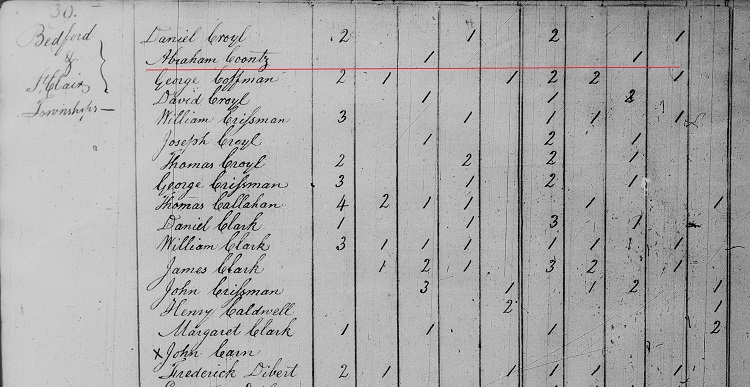 30.
Bedford
&
St Clair
Townships —
Daniel Croyl 2 1 2 1
Abraham Coontz 1 1
George Coffman 2 1 1 2 2 1
David Croyl 1 1
William Crissman 3 1 1 1 1
Joseph Croyl 1 2 1
Thomas Croyl 2 2 2 1
George Crissman 3 1 2 1
Thomas Callahan 4 2 1 1 1 1
Daniel Clark 1 1 3 1
William Clark 3 1 1 1 1 1 1
James Clark 1 2 1 3 2 1
John Crissman 3 1 1 2 1
Henry Caldwell 2 1
Margaret Clark 1 1 1 2
x John Carn
Frederick Dibert 2 1 1 1 1 1